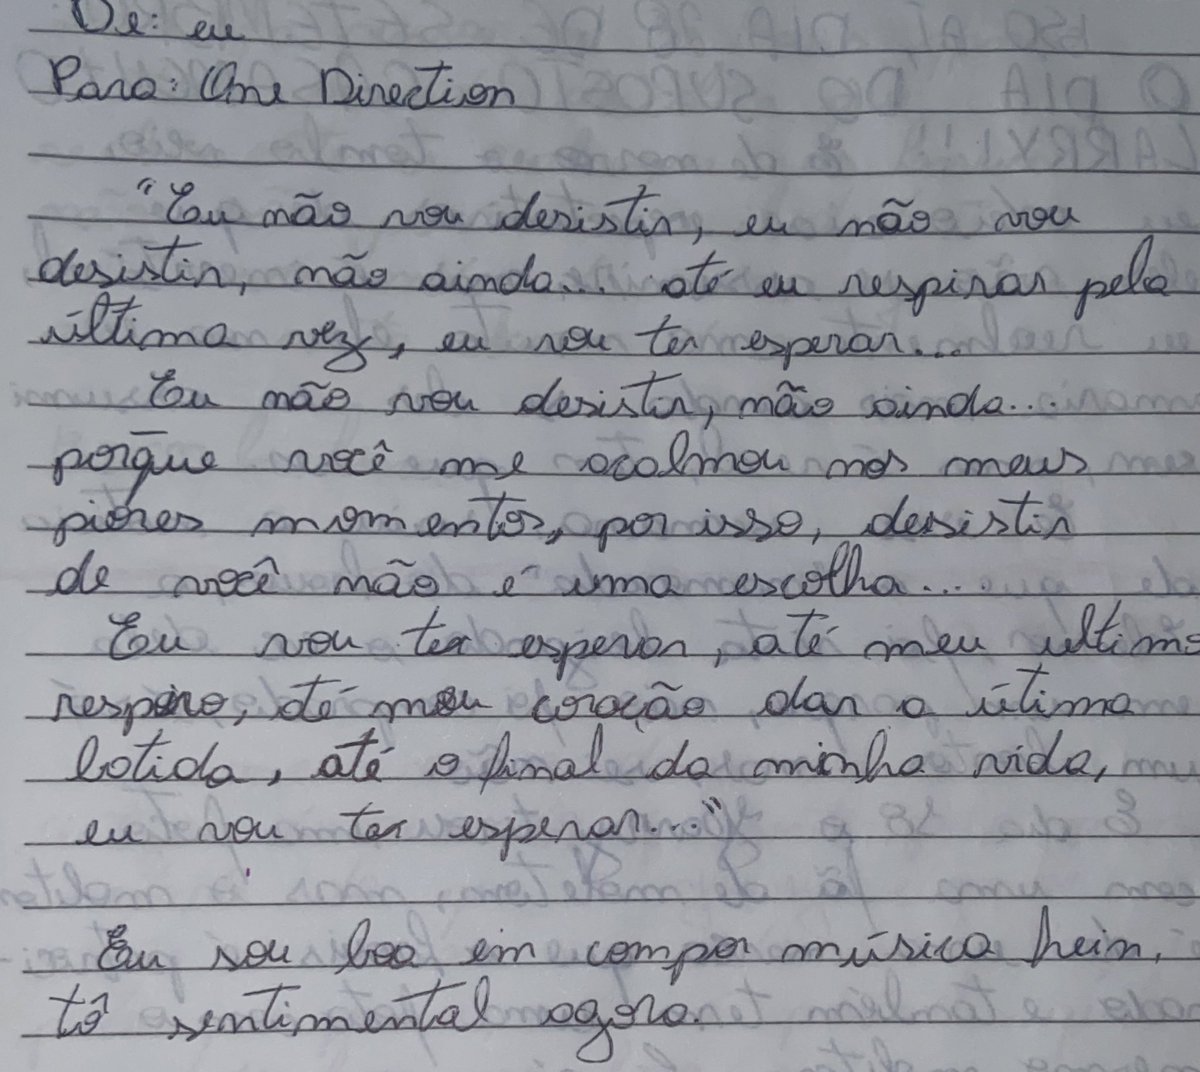 De: eu
Para: One Direction
"Eu não vou desistir, eu não vou
desistir, não ainda... até eu respirar pela
última vez, eu vou ter esperar...
Eu não vou desistir, não ainda...
porque você me acalmou nos meus
piores momentos, por isso, desistir
de você não é uma escolha...
Eu vou ter esperar, até meu ultimo
respiro, até meu coração dar a útima
batida, até o final da minha vida,
eu vou ter esperar..."
Eu sou boa em compor música hein,
tô sentimental agora.